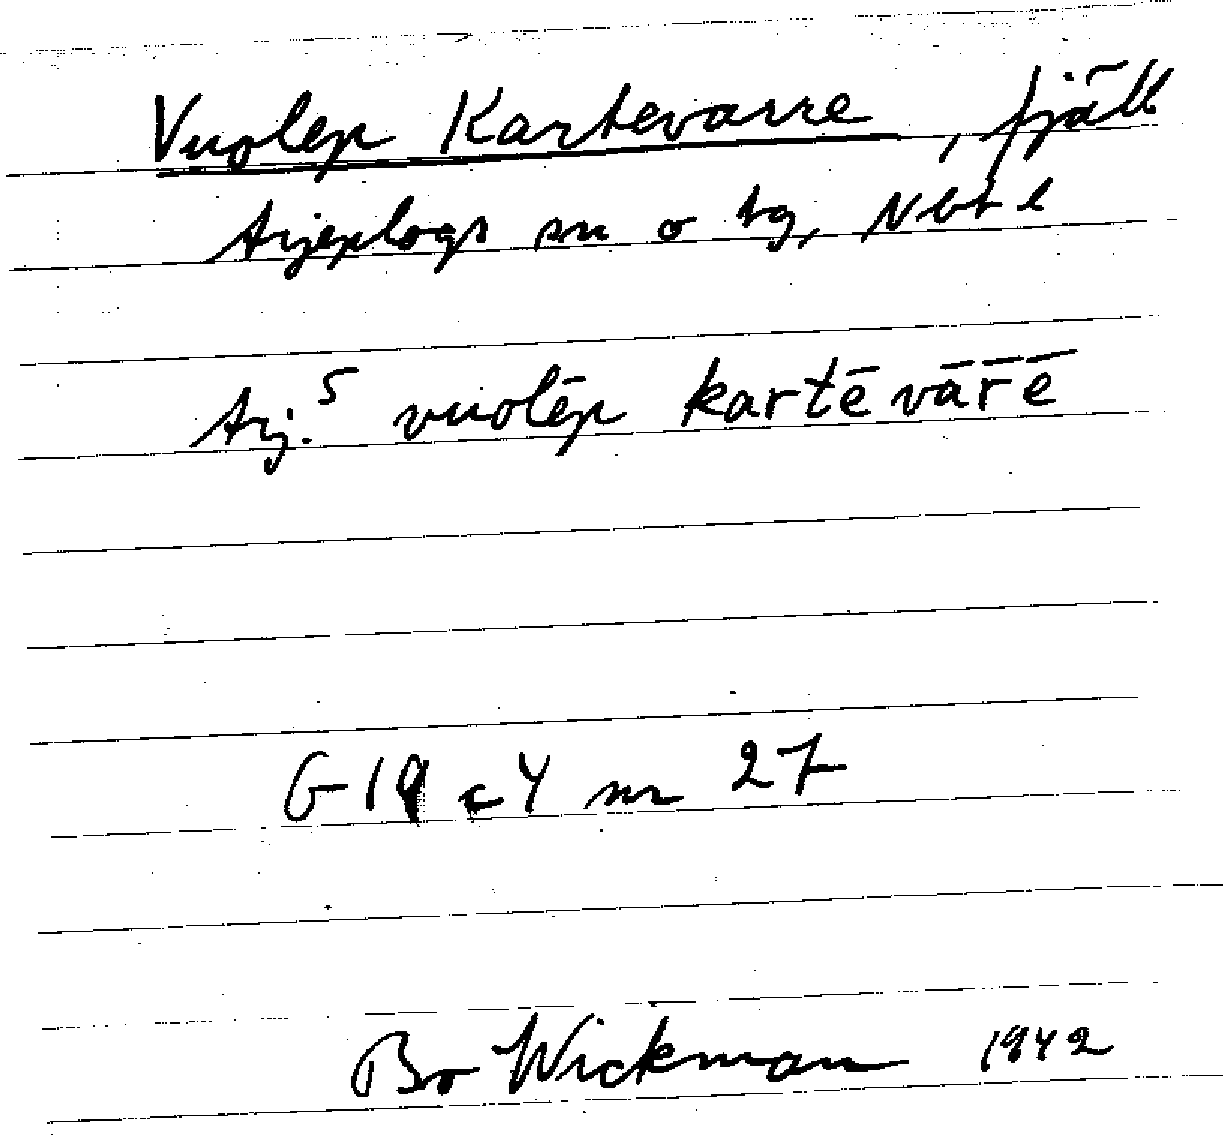 Vuolep Kartevarre, fjäll
Arjeplogs sn o tg, Nbt l
Arj.⁵ vuolēp kartē vār̄ē
G 19 c 4 nr 27
Bo Wickman 1942